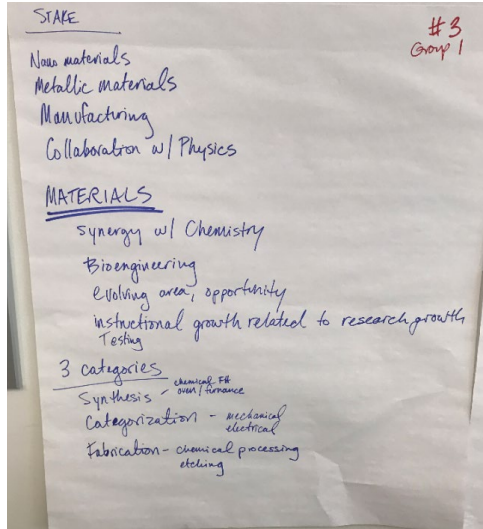 STAKE
#3
Group 1
Nano materials
Metallic materials
Manufacturing
Collaboration w/ Physics
MATERIALS
Synergy w/ Chemistry
Bioengineering
evolving area, opportunity
instructional growth related to research growth
Testing
3 categories
Synthesis - chemical FH
oven/furnance
Categorization - mechanical
electrical
Fabrication - chemical processing
etching